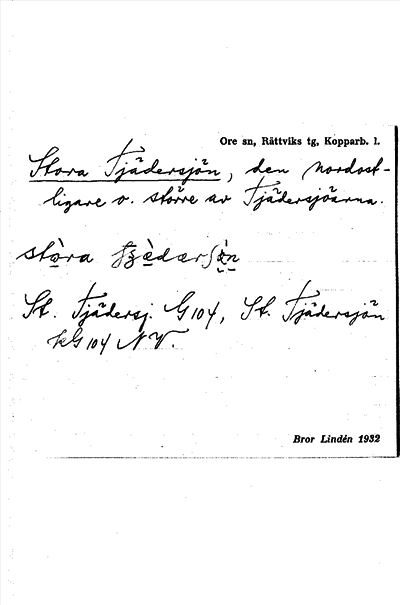 Ore sn, Rättviks tg, Kopparb. l.
Stora Tjädersjön, den nordost-
ligare o. större av Tjädersjöarna.
stòra
St. Tjädersj. G104, St. Tjädersjön
kG104 NV.
Bror Lindén 1932